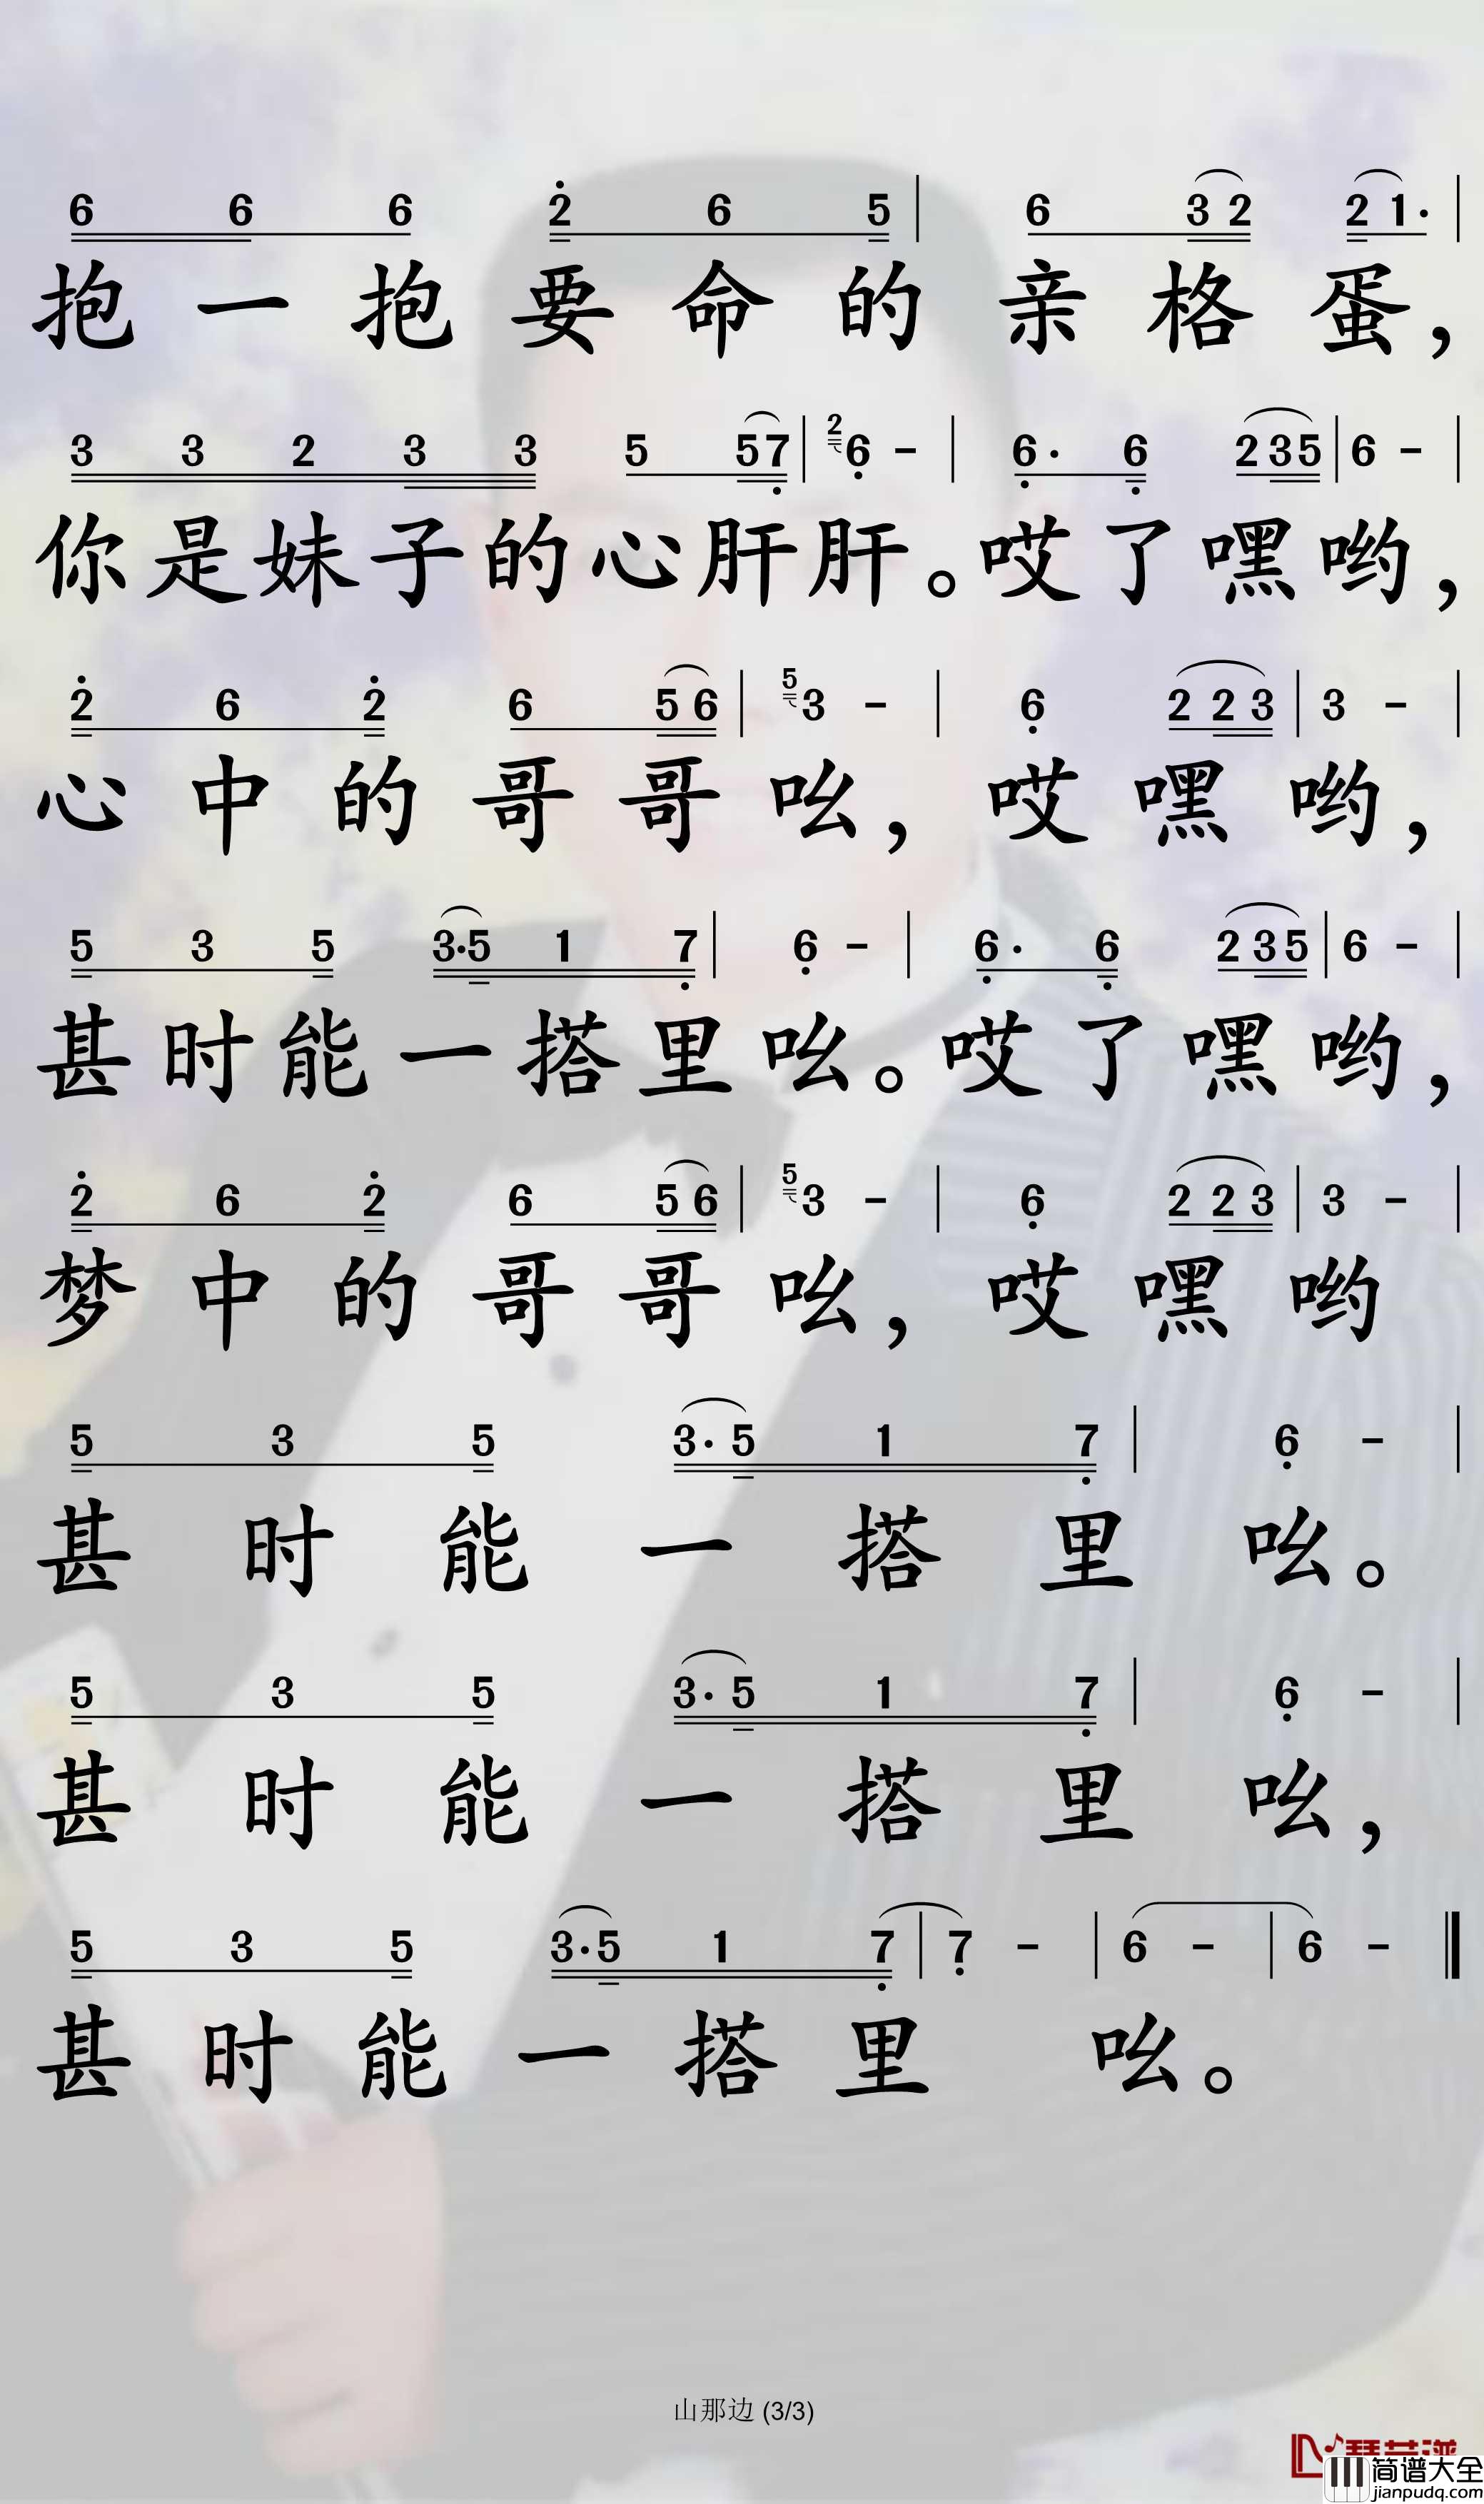 6 6 6 2 6 5 | 6 3 2 2 1· |
抱一抱要命的亲格蛋，
3 3 2 3 3 5 5 7 | 2 6 - | 6· 6 2 3 5 | 6 - |
你是妹子的心肝肝。哎了嘿哟，
2 6 2 6 5 6 | 5 3 - | 6 2 2 3 | 3 - |
心中的哥哥吆，哎嘿哟，
5 3 5 3·5 1 7 | 6 - | 6· 6 2 3 5 | 6 - |
甚时能一搭里吆。哎了嘿哟，
2 6 2 6 5 6 | 5 3 - | 6 2 2 3 | 3 - |
梦中的哥哥吆，哎嘿哟
5 3 5 3·5 1 7 | 6 - |
甚时能一搭里吆。
5 3 5 3·5 1 7 | 6 - |
甚时能一搭里吆，
5 3 5 3·5 1 7 | 7 - | 6 - | 6 - ‖
甚时能一搭里吆。
山那边 (3/3)
简谱大全
jianpudq.com